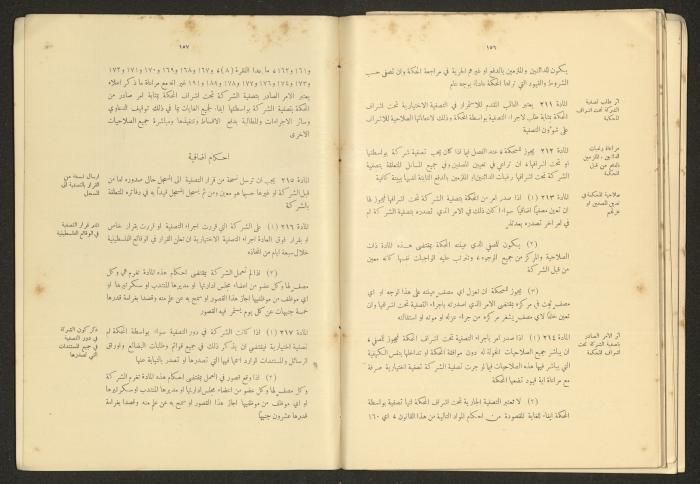 ١٥٦
يكون للدائنين والملزمين بالدفع او غيرهم الحرية في مراجعة المحكمة وان تصفى حسب
الشروط والقيود التي تراها المحكمة عادلة بوجه عام
اثر طلب تصفية
الشركة تحت اشراف
المحكمة
المادة ٢١١ يعتبر الطلب المقدم للاستمرار في التصفية الاختيارية تحت اشراف
المحكمة بمثابة طلب لاجراء التصفية بواسطة المحكمة وذلك لاعطائها الصلاحية للاشراف
على شؤون التصفية
مراعاة رغبات
الدائنين والملزمين
بالدفع من قبل
المحكمة
المادة ٢١٢ يجوز للمحكمة، عند الفصل فيما اذا كان يجب تصفية شركة بواسطتها
او تحت اشرافها، ان تراعي في تعيين المصفين وفي جميع المسائل المتعلقة بتصفية
الشركة تحت اشرافها رغبات الدائنين او الملزمين بالدفع الثابتة لديها ببينة كافية
صلاحية المحكمة في
تعيين المصفين او
عزلهم
المادة ٢١٣ (١) اذا صدر امر من المحكمة بتصفية الشركة تحت اشرافها فيجوز لها
ان تعين مصفياً اضافياً سواء اكان ذلك في الامر الذي تصدره بتصفية الشركة ام
في امر آخر تصدره بعدئذ
(٢) يكون للمصفي الذي عينته المحكمة بمقتضى هذه المادة ذات
الصلاحية والمركز من جميع الوجوه، وتترتب عليه الواجبات نفسها كأنه معين
من قبل الشركة
(٣) يجوز للمحكمة ان تعزل اي مصف عينته على هذا الوجه او اي
مصف يثبت في مركزه بمقتضى الامر الذي اصدرته باجراء التصفية تحت اشرافها وان
تعين خلفاً لاي مصف يشغر مركزه من جراء عزله او موته او استقالته
اثر الامر الصادر
بتصفية الشركة تحت
اشراف المحكمة
المادة ٢١٤ (١) اذا صدر امر باجراء التصفية تحت اشراف المحكمة فيجوز للمصفي،
ان يباشر جميع الصلاحيات المخولة له دون موافقة المحكمة او تداخلها بنفس الكيفية
التي يباشر فيها هذه الصلاحيات فيما لو جرت تصفية الشركة تصفية اختيارية صرفة
مع مراعاة اية قيود تضعها المحكمة
(٢) لا تعتبر التصفية الجارية تحت اشراف المحكمة انها تصفية بواسطة
المحكمة ايفاء للغاية المقصودة من احكام المواد التالية من هذا القانون، اي ١٦٠
١٥٧
و١٦١ و١٦٢، ما عدا الفقرة (٨)، و١٦٧ و١٦٨ و١٦٩ و١٧٠ و١٧١ و١٧٢
و١٧٣ و١٧٤ و١٧٦ و١٧٧ و١٧٨ و١٨٨ و١٩١ غير انه مع مراعاة ما ذكر اعلاه
يعتبر الامر الصادر بتصفية الشركة تحت اشراف المحكمة بمثابة امر صادر من
المحكمة بتصفية الشركة بواسطتها ايفاء لجميع الغايات بما في ذلك توقيف الدعاوي
وسائر الاجراءات والمطالبة بدفع الاقساط وتنفيذها ومباشرة جميع الصلاحيات
الاخرى
احكام اضافية
ارسال نسخة من
القرار بالتصفية الى
المسجل
المادة ٢١٥ يجب ان ترسل نسخة من قرار التصفية الى المسجل حال صدوره اما من
قبل الشركة او غيرها حسبما هو معين ومن ثم يسجل المسجل قيداً به في دفاتره المتعلقة
بالشركة
نشر قرار التصفية
في الوقائع الفلسطينية
المادة ٢١٦ (١) على الشركة التي قررت اجراء التصفية او قررت بقرار خاص
او بقرار فوق العادة اجراء التصفية الاختيارية ان تعلن القرار في الوقائع الفلسطينية
خلال سبعة ايام من اتخاذه
(٢) اذا لم تعمل الشركة بمقتضى احكام هذه المادة تغرم هي وكل
مصف لها وكل عضو من اعضاء مجلس ادارتها او مديرها المنتدب او سكرتيرها او
اي موظف من موظفيها اجاز هذا القصور او سمح به عن علم منه وقصد بغرامة قدرها
خمسة جنيهات عن كل يوم يستمر فيه القصور
ذكر كون الشركة
في دور التصفية
في جميع المستندات
التي تصدرها
المادة ٢١٧ (١) اذا كانت الشركة في دور التصفية سواء بواسطة المحكمة ام
تصفية اختيارية فيقتضى ان يذكر ذلك في جميع قوائم وطلبات البضائع واوراق
الرسائل والمستندات الوارد اسمها فيها التي تصدرها او تصدر بالنيابة عنها
(٢) اذا وقع قصور في العمل بمقتضى احكام هذه المادة تغرم الشركة
وكل مصف لها وكل عضو من اعضاء مجلس ادارتها او مديرها المنتدب او سكرتيرها
او اي موظف من موظفيها اجاز هذا القصور او سمح به عن علم منه وقصد بغرامة
قدرها عشرون جنيهاً